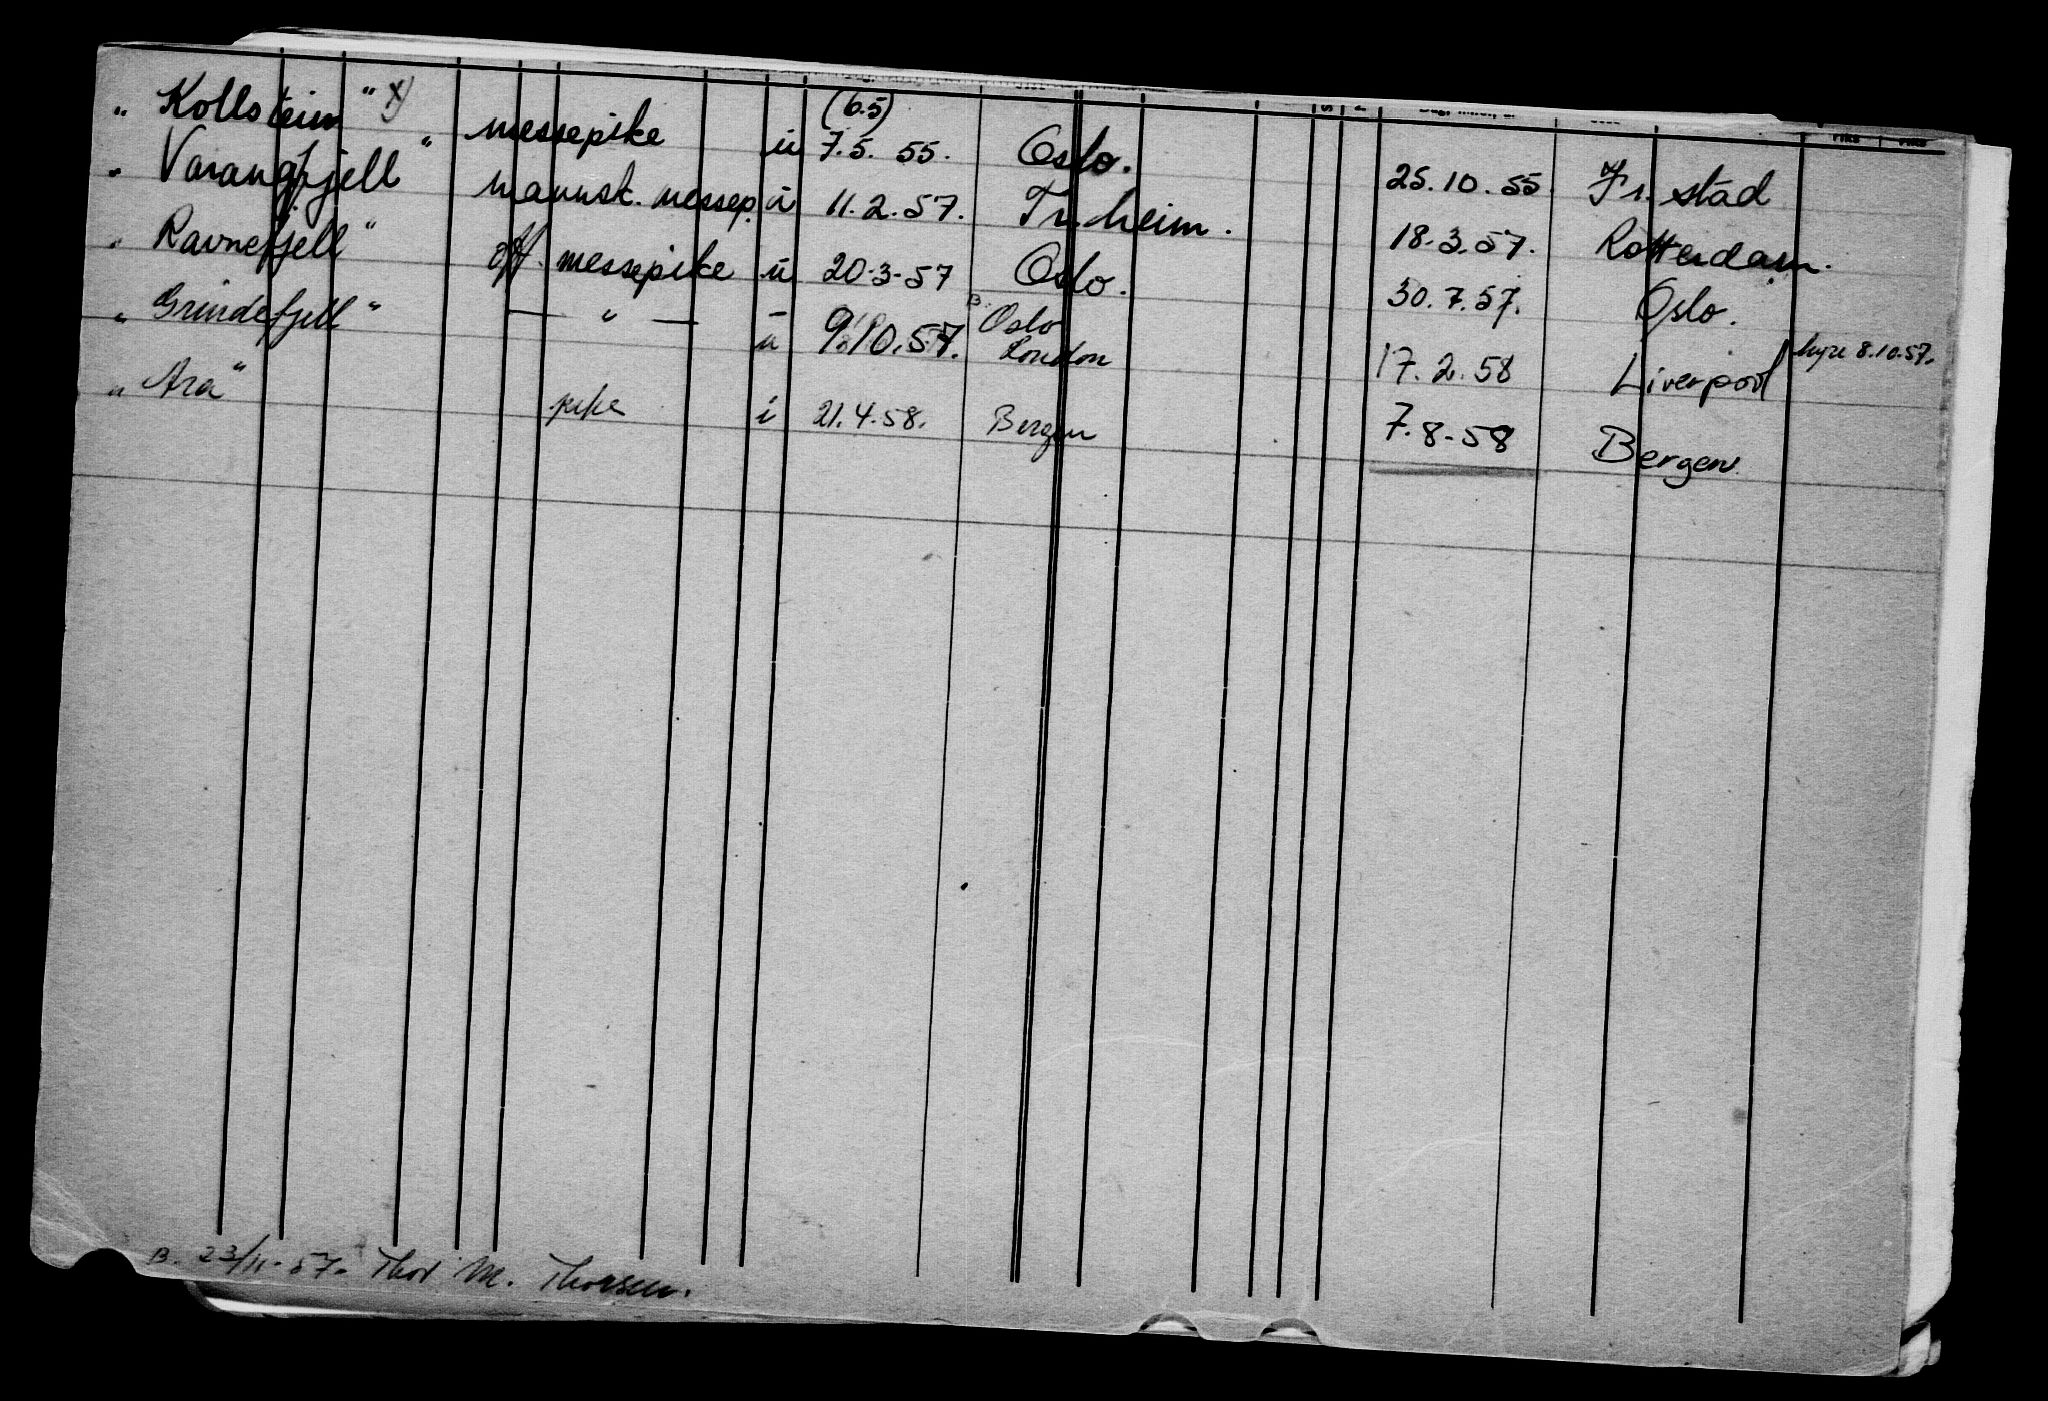 " Kollstein " x) messepike u (6.5) 7.5. 55. Oslo. 25.10.55. Fr.stad
" Varangfjell " mannsk. messep. u 11.2.57. Tr.heim. 18.3.57. Rotterdam.
" Ravnefjell " off. messepike u 20.3-57 Oslo. 30.7.57. Oslo.
" Grindefjell " — " — u 9.10.57. B. Oslo London 17.2.58 Liverpool hyre 8.10.57.
" Ara " pike i 21.4.58. Bergen 7.8-58 Bergen
B. 23/11-57. Thor M. Thorsen.